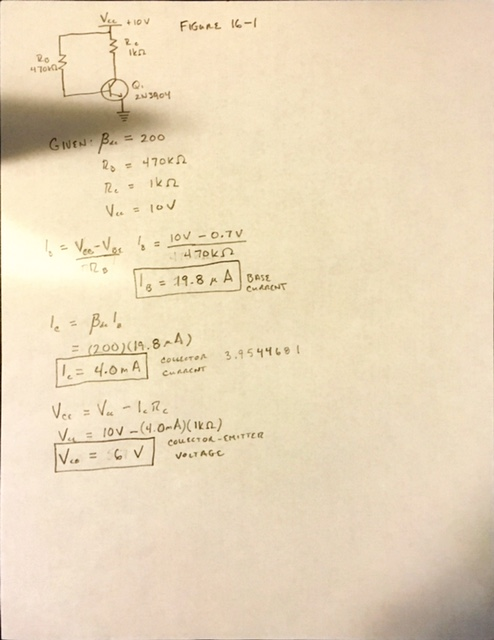 Vcc +10V FIGURE 16-1
Rc
1kΩ
RB
470kΩ
Q1
2N3904
GIVEN: βdc = 200
RB = 470kΩ
Rc = 1kΩ
Vcc = 10V
IB = VCC-VBE / RB IB = 10V - 0.7V / 470kΩ
IB = 19.8 μA BASE CURRENT
Ic = βdc IB
= (200)(19.8 μA)
Ic = 4.0mA COLLECTOR CURRENT 3.9544681
VCE = Vcc - IcRc
= 10V - (4.0mA)(1kΩ)
= 6 V COLLECTOR-EMITTER VOLTAGE